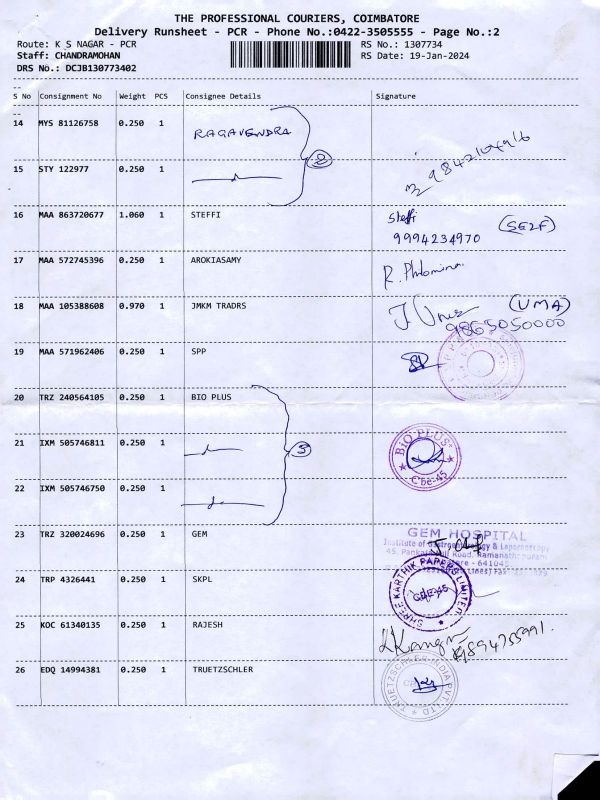 THE PROFESSIONAL COURIERS, COIMBATORE
Delivery Runsheet - PCR - Phone No.:0422-3505555 - Page No.:2
Route: K S NAGAR - PCR RS No.: 1307734
Staff: CHANDRAMOHAN RS Date: 19-Jan-2024
DRS No.: DCJB130773402
S No Consignment No Weight PCS Consignee Details Signature
14 MYS 81126758 0.250 1 RAGAVENDRA
2
15 STY 122977 0.250 1
16 MAA 863720677 1.060 1 STEFFI Steffi (SELF)
9994234970
17 MAA 572745396 0.250 1 AROKIASAMY R. Philomina
18 MAA 105388608 0.970 1 JMKM TRADRS (UMA)
9865050000
19 MAA 571962406 0.250 1 SPP
20 TRZ 240564105 0.250 1 BIO PLUS
21 IXM 505746811 0.250 1 BIO PLUS
3
Cbe-45
22 IXM 505746750 0.250 1
23 TRZ 320024696 0.250 1 GEM GEM HOSPITAL
Institute of & Laparoscopy
45, Ramanathapuram
- 641045
24 TRP 4326441 0.250 1 SKPL SHREE KARTHIK PAPERS LIMITED
CBE-45
25 KOC 61340135 0.250 1 RAJESH
9894755991
26 EDQ 14994381 0.250 1 TRUETZSCHLER TRUETZSCHLER INDIA PVT LTD